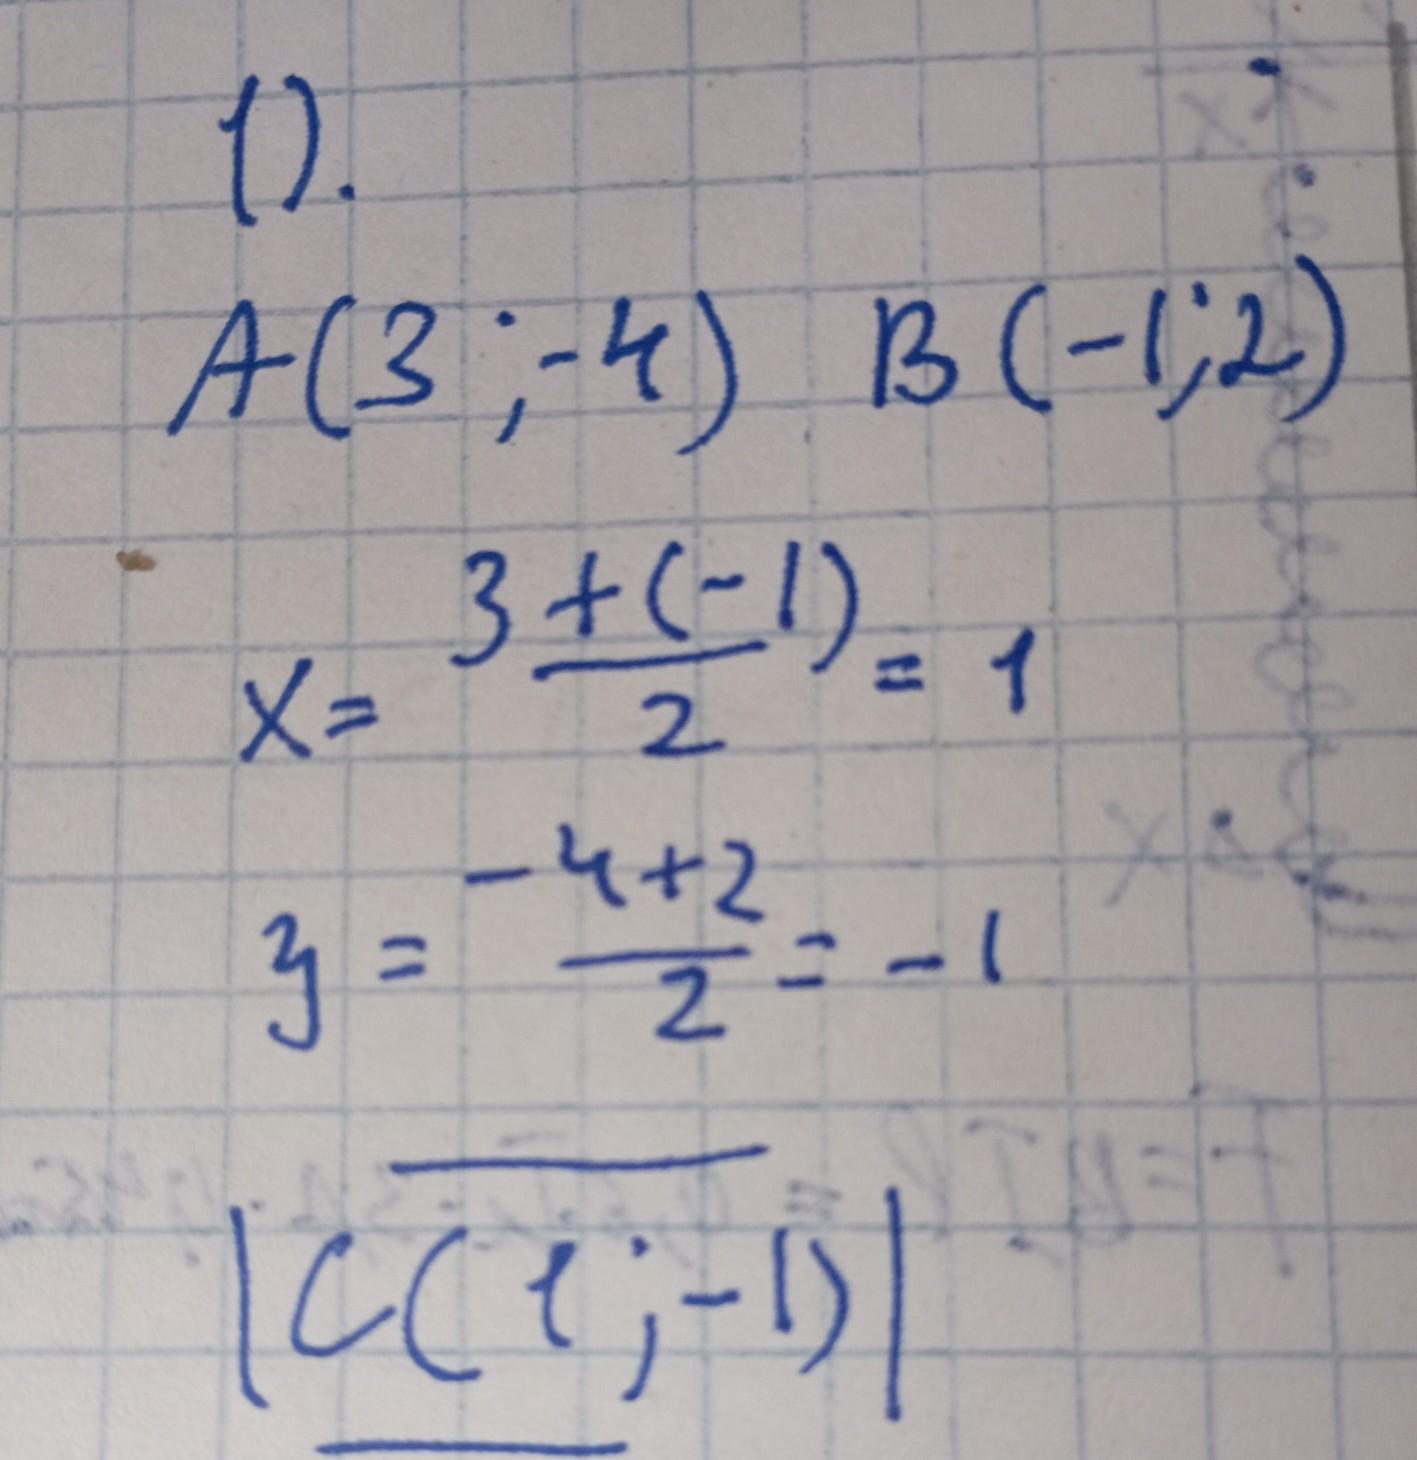 1).
A(3;-4) B(-1;2)
x = \frac{3+(-1)}{2} = 1
y = \frac{-4+2}{2} = -1
C(1;-1)